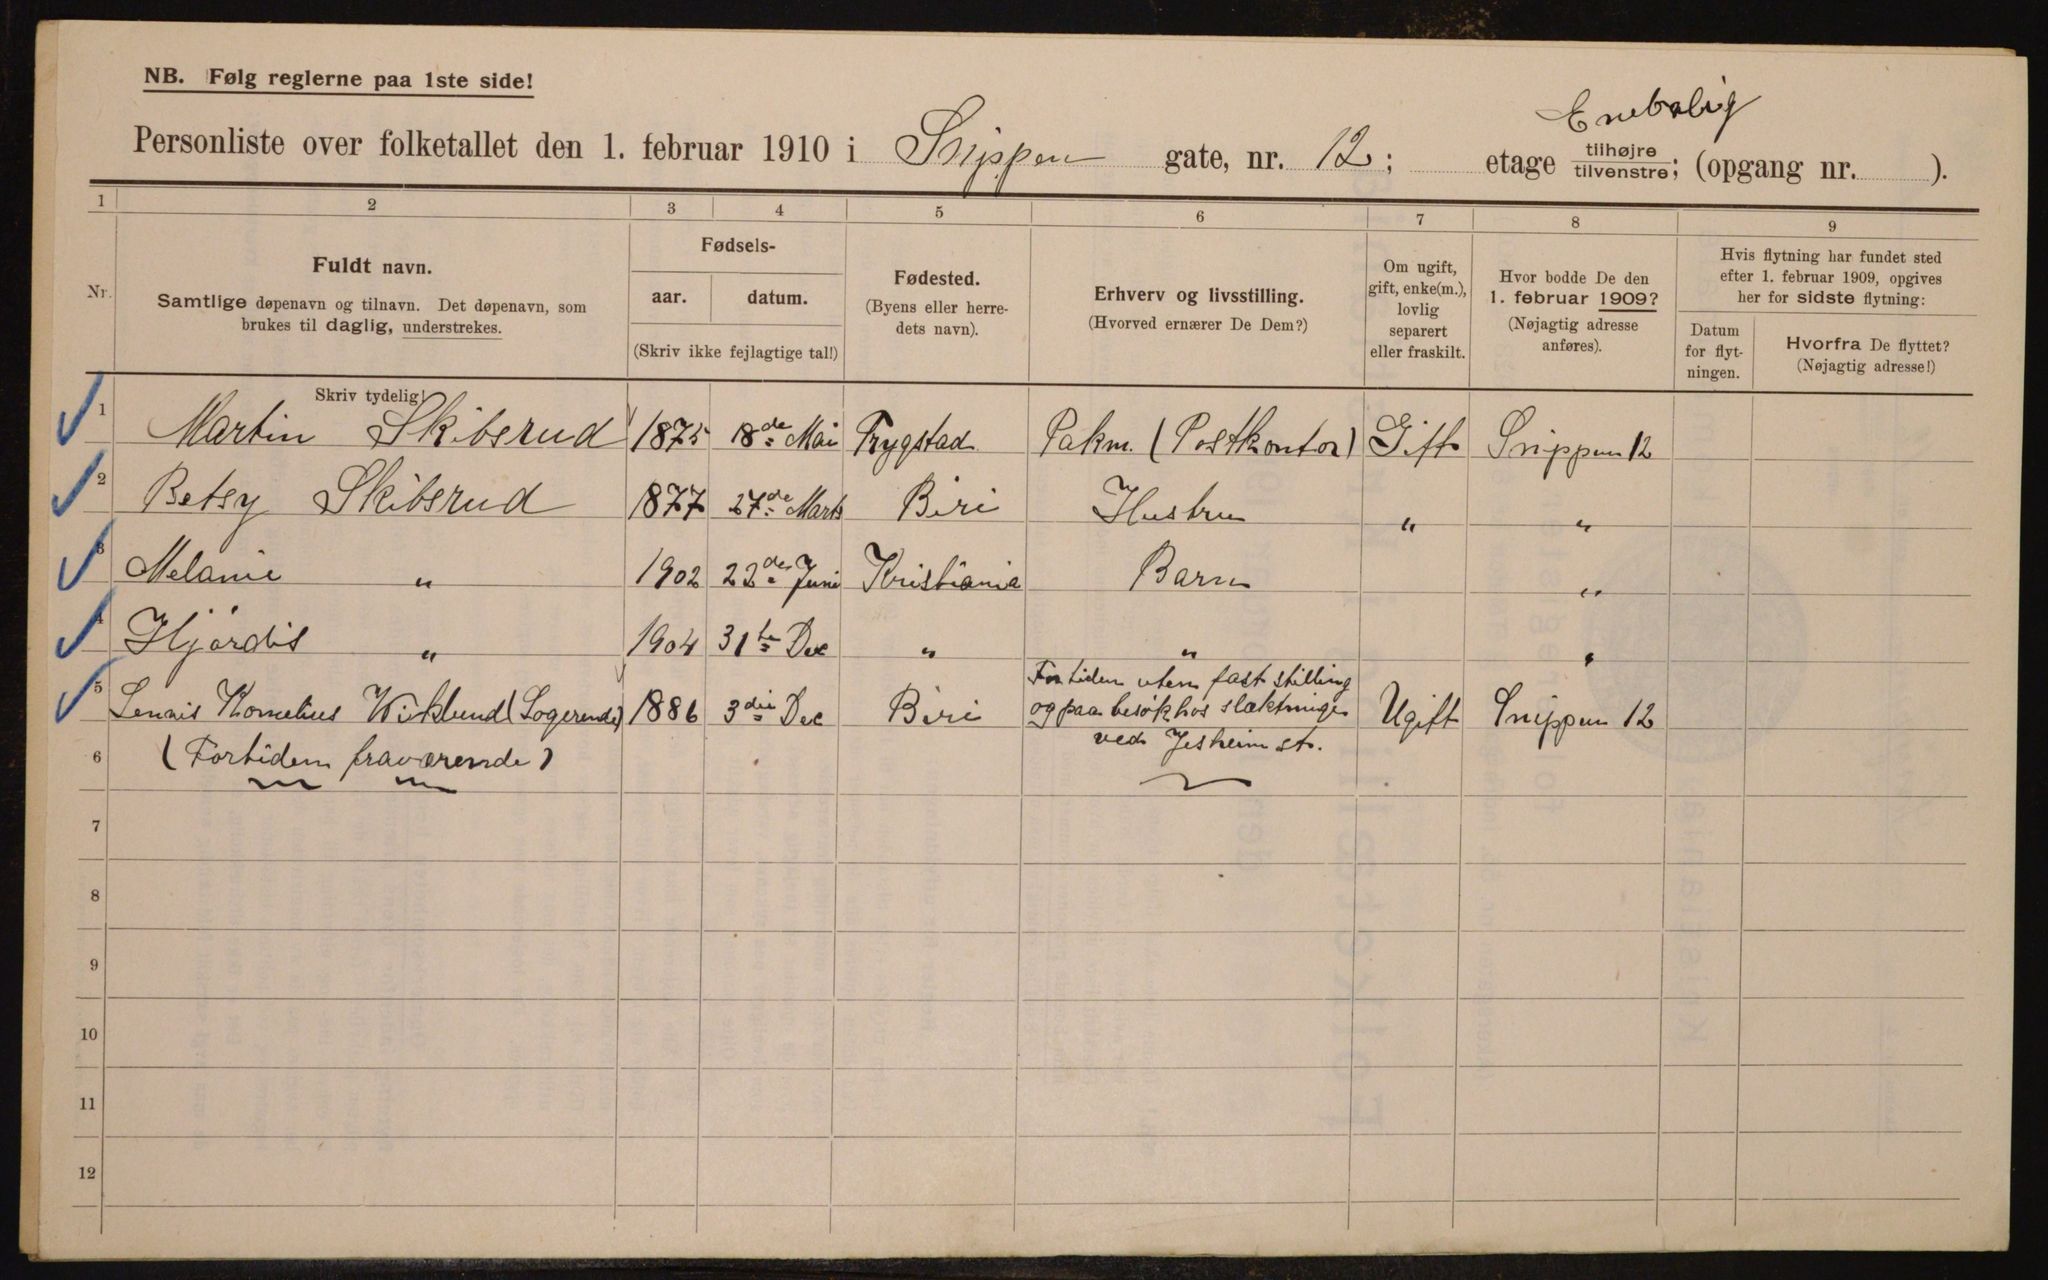 NB. Følg reglerne paa 1ste side!
Enebolig
Personliste over folketallet den 1. februar 1910 i Snippen gate, nr. 12; etage tilhøjre tilvenstre; (opgang nr. ).
1 2 3 4 5 6 7 8 9
Nr.
Fuldt navn.
Samtlige døpenavn og tilnavn. Det døpenavn, som
brukes til daglig, understrekes.
Skriv tydelig!
Fødsels-
aar. datum.
(Skriv ikke fejlagtige tal!)
Fødested.
(Byens eller herre-
dets navn).
Erhverv og livsstilling.
(Hvorved ernærer De Dem?)
Om ugift,
gift, enke(m.),
lovlig
separert
eller fraskilt.
Hvor bodde De den
1. februar 1909?
(Nøjagtig adresse
anføres).
Hvis flytning har fundet sted
efter 1. februar 1909, opgives
her for sidste flytning:
Datum
for flyt-
ningen.
Hvorfra De flyttet?
(Nøjagtig adresse!)
1 Martin Skibsrud 1875 18de Mai Trygstad Pakm. (Postkontor) Gift Snippen 12
2 Betsy Skibsrud 1877 27de Marts Biri Hustru " "
3 Melanie " 1902 22de Juni Kristiania Barn "
4 Hjördis " 1904 31te Dec " " "
5 Lennis Kornelius Wiklund (Logerende) 1886 3die Dec Biri For tiden uten fast stilling
og paa besök hos slægtninge Ugift Snippen 12
ved Jesheim st.
6 (Fortiden fraværende)
7
8
9
10
11
12